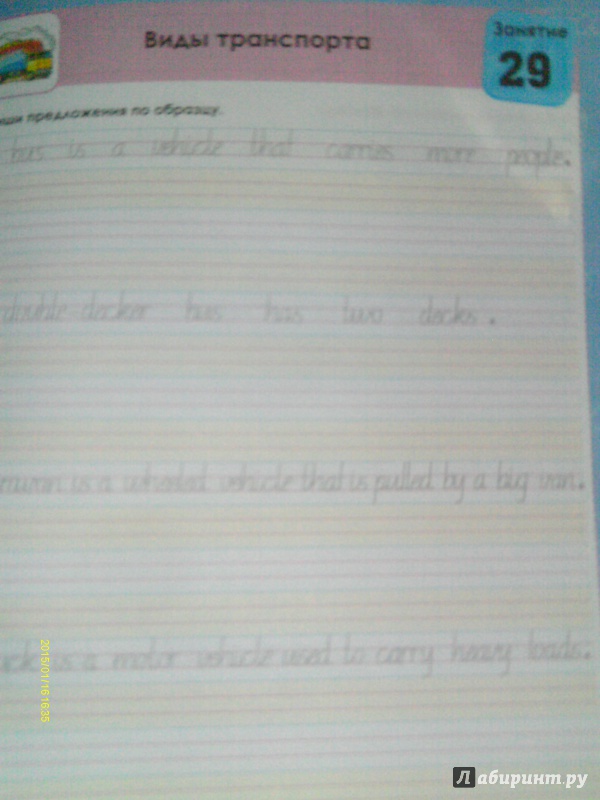 Виды транспорта
Занятие
29
предложения по образцу.
bus is a vehicle that carries more people.
double decker bus has two decks.
is a wheeled vehicle that is pulled by a big van.
is a motor vehicle used to carry heavy loads.
2015/01/16 16:35
Лабиринт.ру